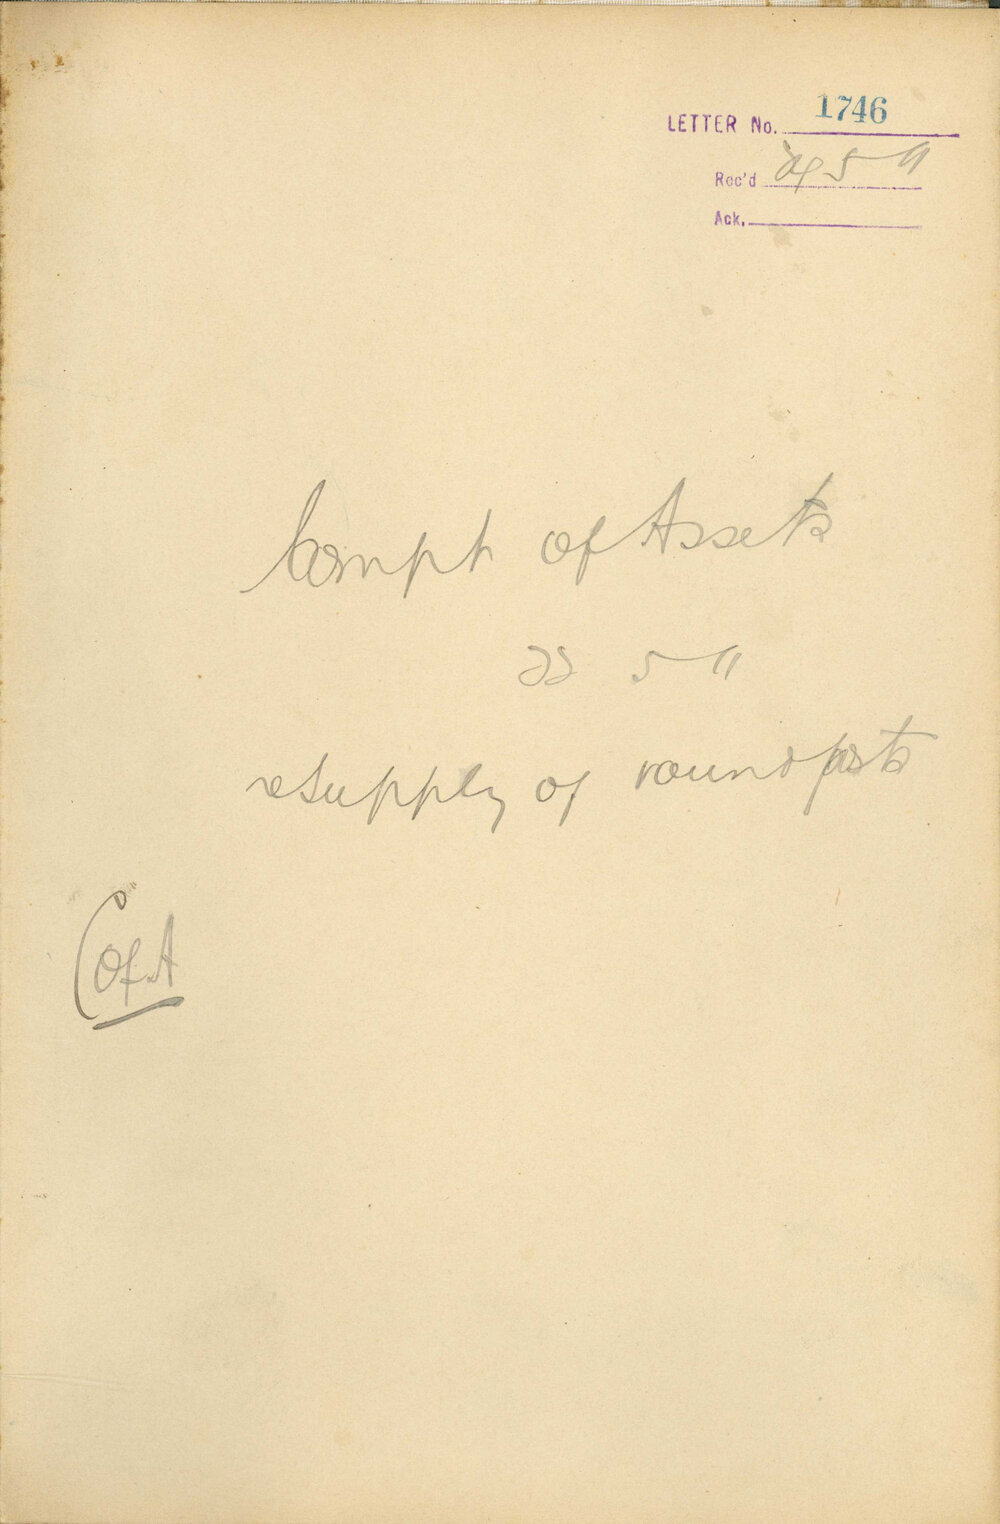 LETTER No. 1746
Rec'd 24 5 11
Ack.
Compt of Assets
22 5 11
re supply of round posts
C of A